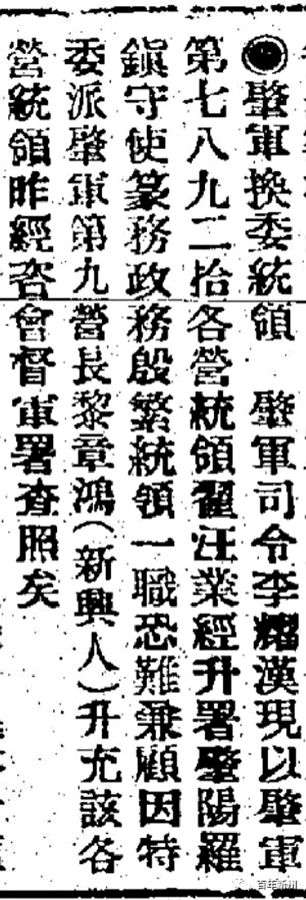 ◉肇軍換委統領　肇軍司令李耀漢現以肇軍
第七八九二拾各營統領翟汪業經升署肇陽羅
鎮守使篆務政務殷繁統領一職恐難兼顧因特
委派肇軍第九營長黎章鴻（新興人）升充該各
營統領昨經咨會督軍署查照矣
百年新州